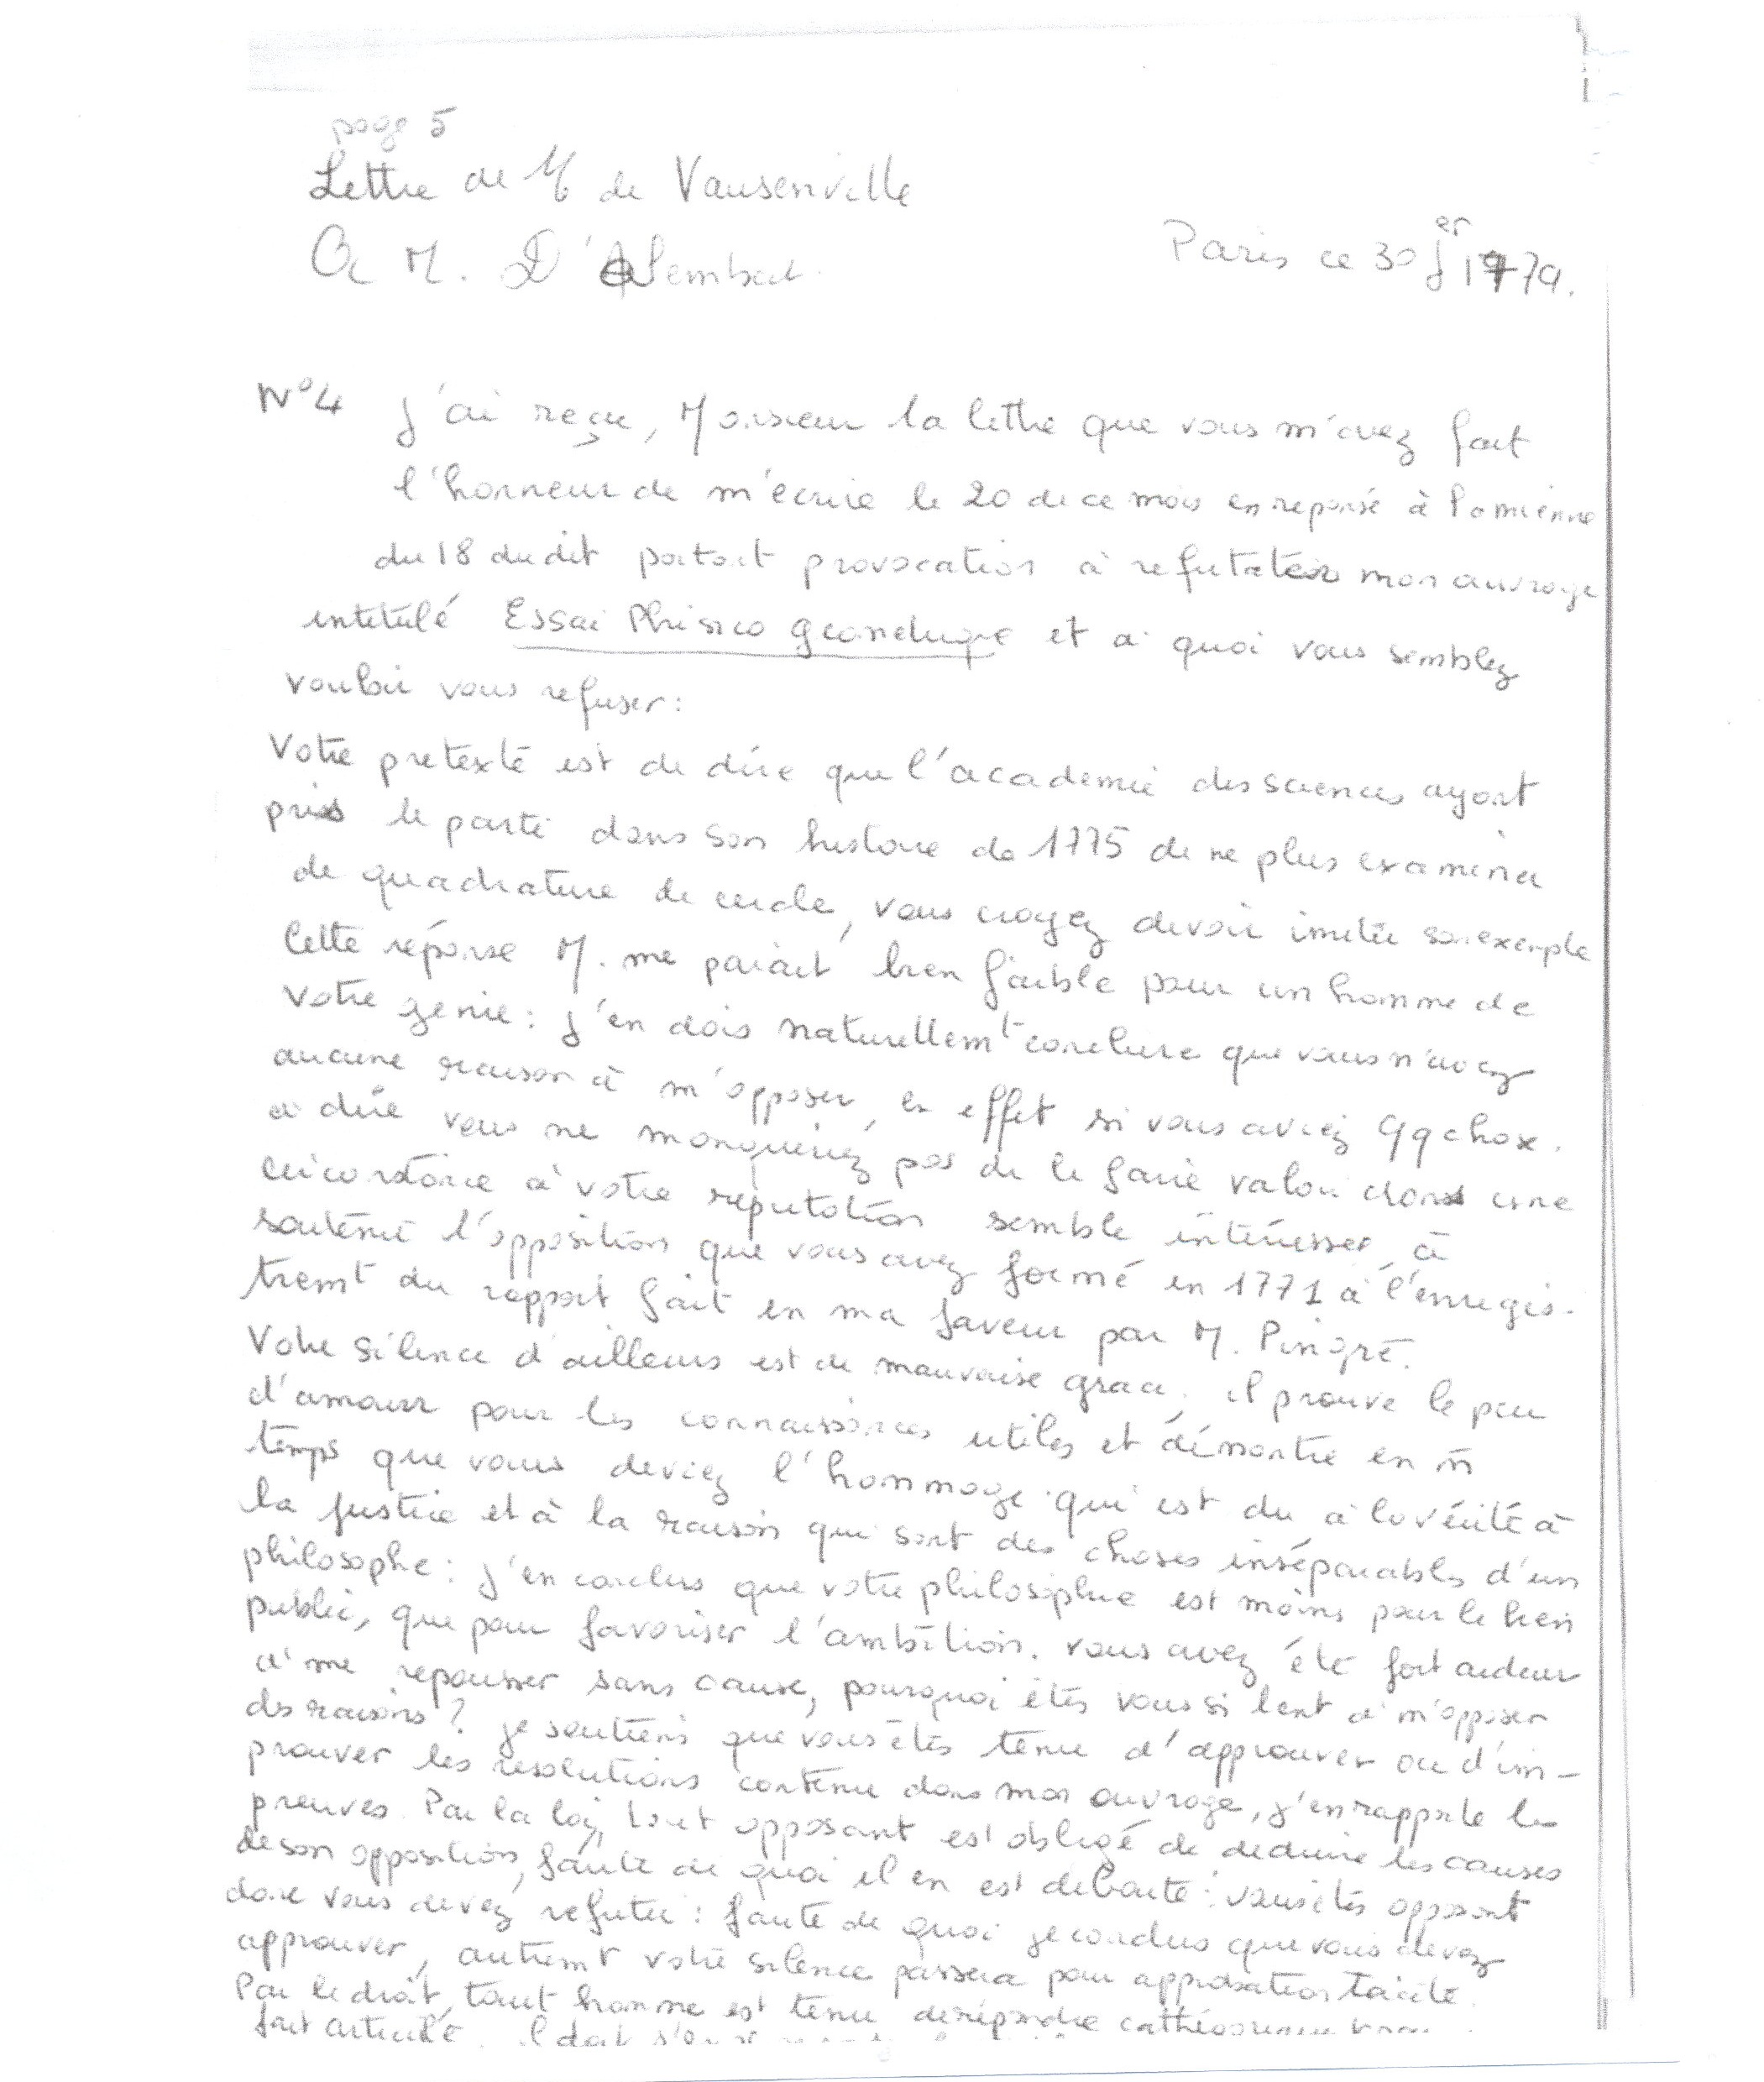 page 5
Lettre de M de Vausenville
A M. D'Alembert.
Paris ce 30 Jer 1779.
N°4 J'ai reçu, Monsieur la lettre que vous m'avez fait
l'honneur de m'écrire le 20 de ce mois en reponse à la mienne
du 18 du dit portant provocation à refutater mon ouvrage
intitulé Essai Phisico geometrique et a quoi vous semblez
vouloir vous refuser :
Votre pretexte est de dire que l'academie des sciences ayant
pris le parti dans son histoire de 1775 de ne plus examiner
de quadrature de cercle, vous croyez devoir imiter son exemple
Cette réponse M. me parait bien faible pour un homme de
votre genie : j'en dois naturellemt conclure que vous n'avez
aucune raison à m'opposer, en effet si vous aviez qqchose.
a dire vous ne manqueriez pas de le faire valoir dans une
circonstance à votre reputation semble intéresser, à
soutenir l'opposition que vous avez formé en 1771 à l'enregis-
tremt du rapport fait en ma faveur par M. Pingré.
Votre silence d'ailleurs est de mauvaise grace. il prouve le peu
d'amour pour les connaissances utiles et démontre en m̄
temps que vous deviez l'hommage qui est du a la vérité à
la justice et à la raison qui sont des choses inséparables d'un
philosophe : j'en conclus que votre philosophie est moins pour le bien
public, que pour favoriser l'ambition. vous avez été fort ardeur
a me repousser sans cause, pourquoi êtes vous si lent a m'opposer
des raisons? je soutiens que vous êtes tenu d'approuver ou d'im-
prouver les resolutions contenu dans mon ouvrage, j'en rapporte les
preuves. Par la loi, tout opposant est obligé de deduire les causes
de son opposition, faute de quoi il en est deboute : vous êtes opposant
donc vous devez refuter : faute de quoi je conclus que vous devez
approuver, autremt votre silence passera pour approbation tacite.
Par le droit, tout homme est tenu de répondre cathégoriquement
fait articulé. il doit